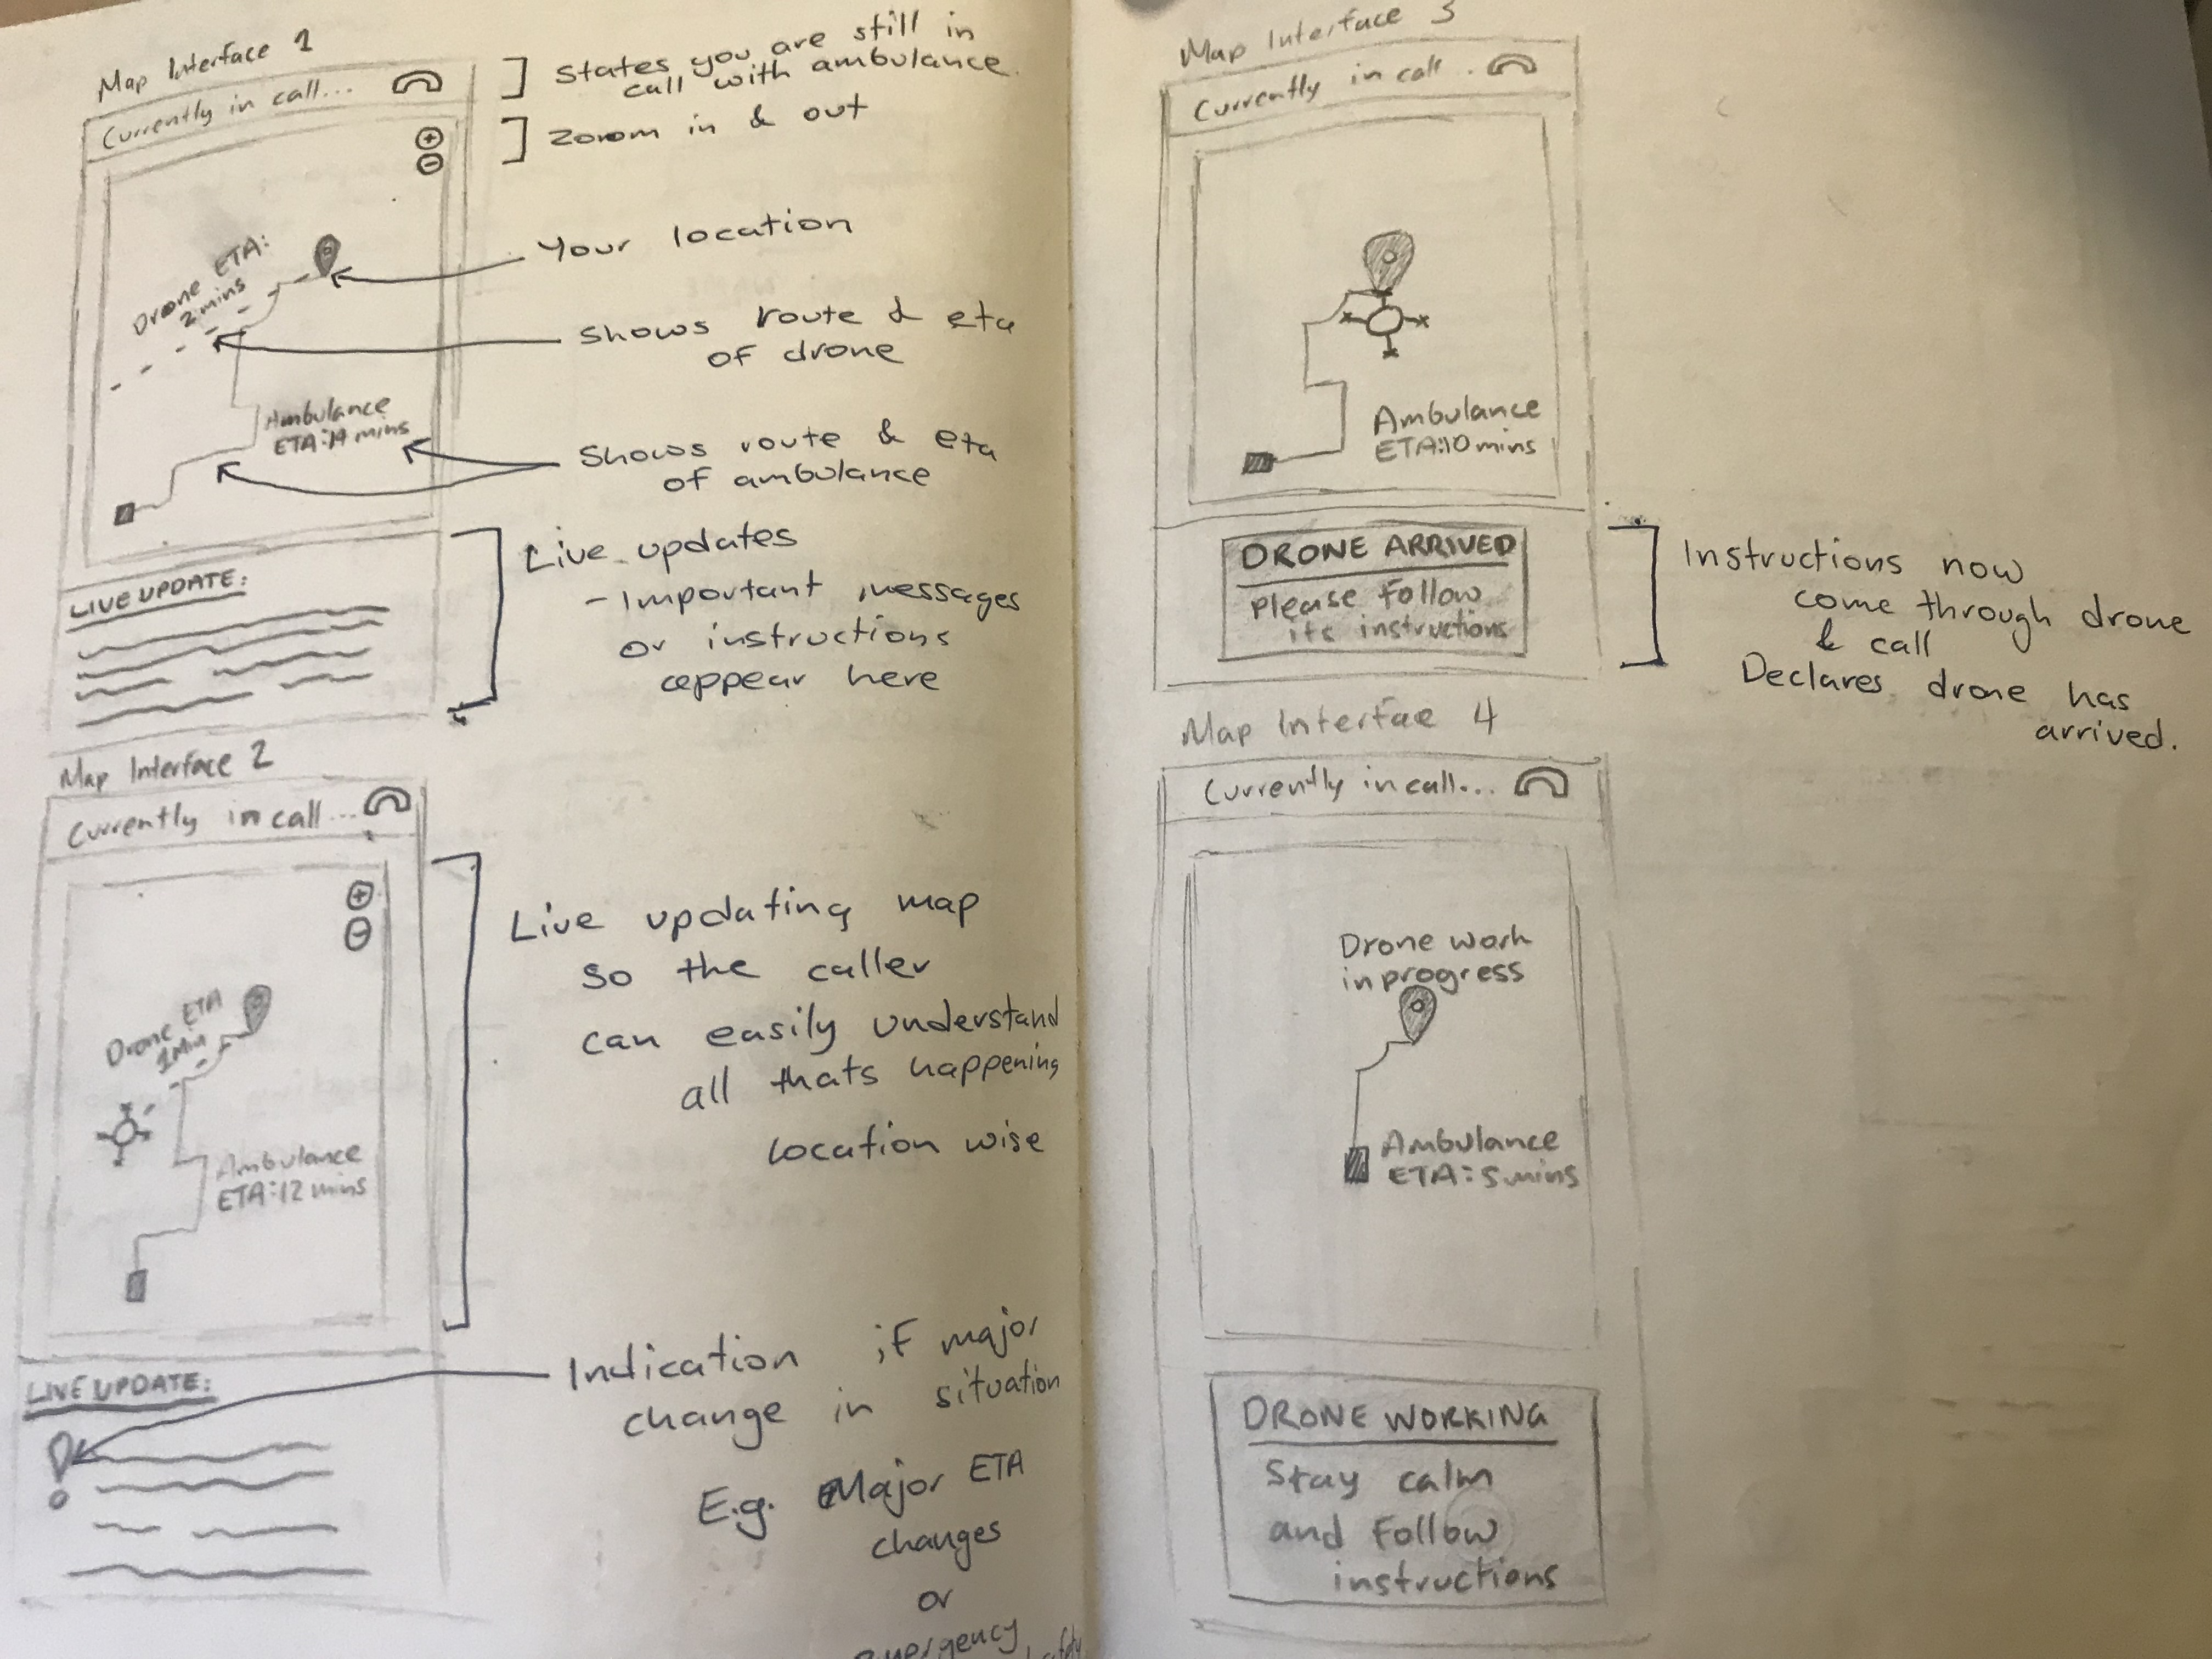 Map Interface 1
Currently in call...
States you are still in
call with ambulance.
Zoom in & out
Your location
Drone ETA:
2 mins
Shows route & eta
of drone
Ambulance
ETA: 14 mins
Shows route & eta
of ambulance
LIVE UPDATE:
Live updates
- Important messages
or instructions
appear here
Map Interface 2
Currently in call...
Drone ETA
1 Min
Ambulance
ETA: 12 mins
Live updating map
so the caller
can easily understand
all thats happening
location wise
LIVE UPDATE:
!
Indication if major
change in situation
E.g. Major ETA
changes
or
emergency
Map Interface 3
Currently in call..
Ambulance
ETA: 10 mins
DRONE ARRIVED
Please follow
its instructions
Instructions now
come through drone
& call
Declares drone has
arrived.
Map Interfae 4
Currently in call...
Drone work
in progress
Ambulance
ETA: 5 mins
DRONE WORKING
Stay calm
and Follow
instructions